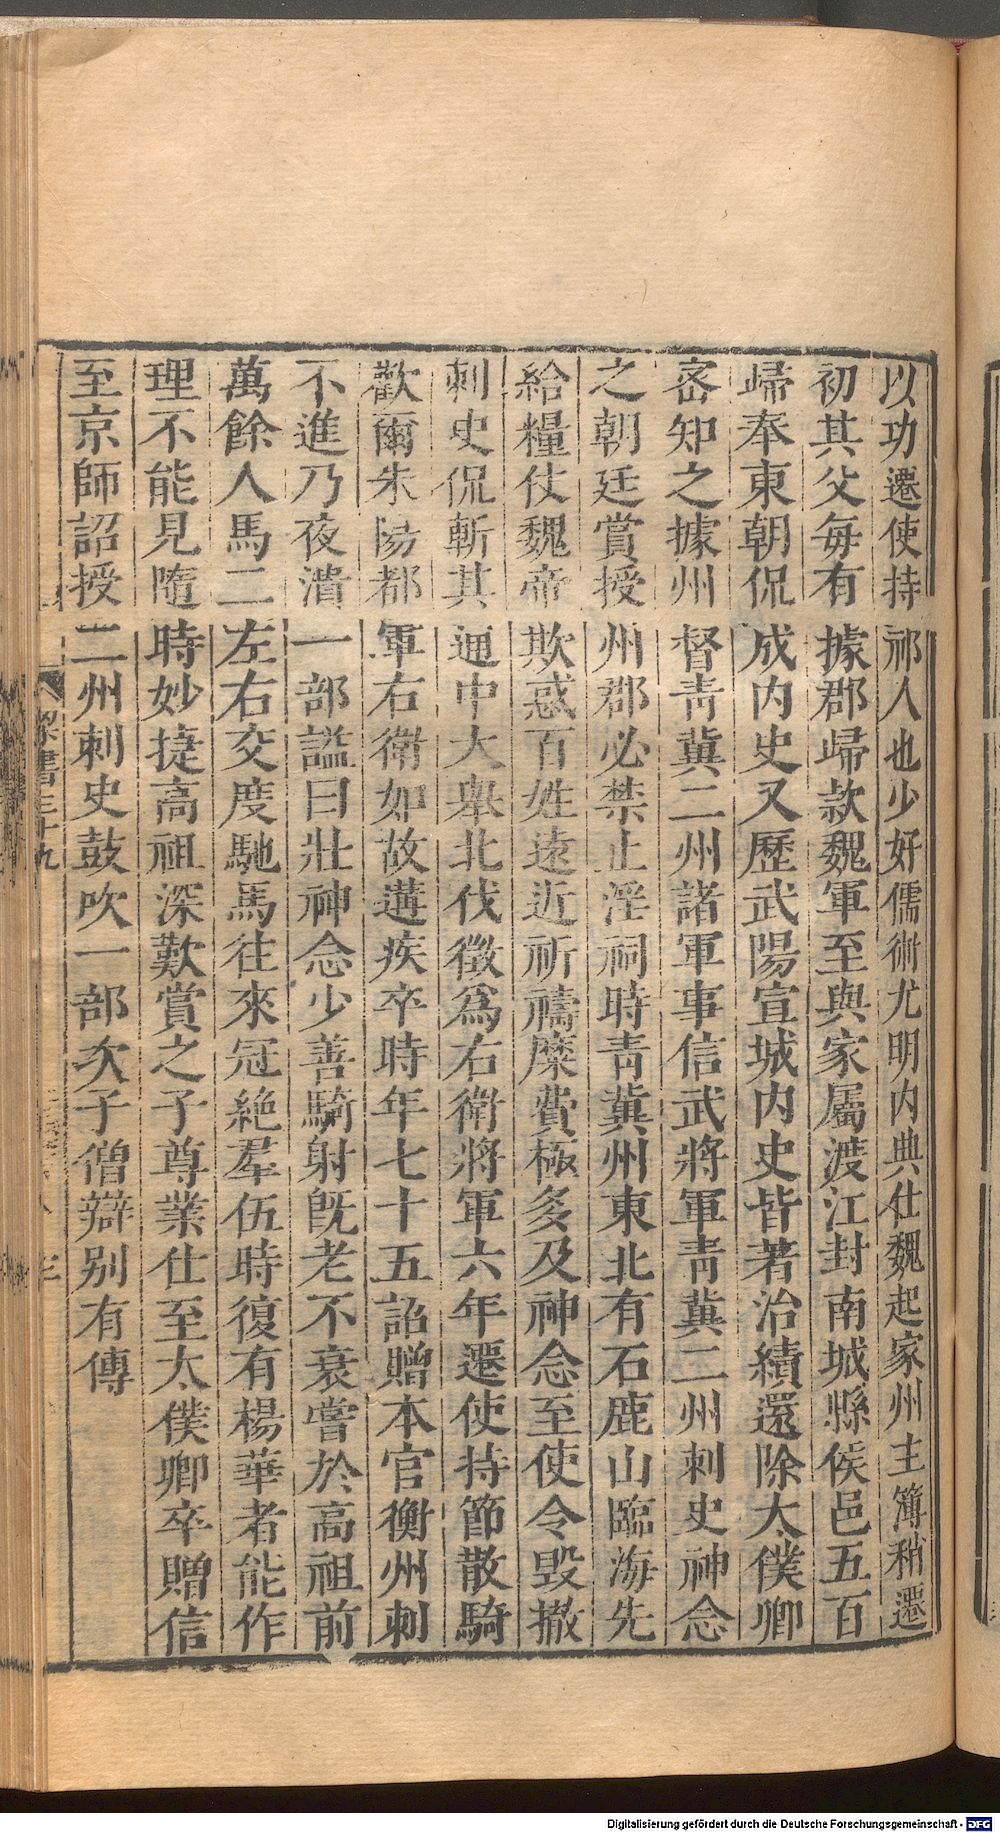 以功遷使持祁人也少好儒術尤明内典仕魏起家州主簿稍遷
初其父每有據郡歸款魏軍至與家屬渡江封南城縣侯邑五百
歸奉東朝侃成内史又歷武陽宣城内史皆著治績還除太僕卿
宻知之據州督靑冀二州諸軍事信武將軍靑冀二州刺史神念
之朝廷賞授州郡必禁止淫祠時靑冀州東北有石鹿山臨海先
給糧仗魏帝欺惑百姓遠近祈禱糜費極多及神念至使令毀撤
刺史侃斬其通中大舉北伐徵爲右衛將軍六年遷使持節散騎
歡爾朱陽都軍右衛如故遘疾卒時年七十五詔贈本官衡州刺
不進乃夜潰一部謚曰壯神念少善騎射旣老不衰嘗於高祖前
萬餘人馬二左右交度馳馬往來冠絶羣伍時復有楊華者能作
理不能見隨時妙捷高祖深歎賞之子尊業仕至太僕卿卒贈信
至京師詔授二州刺史鼓吹一部次子僧辯别有傳
梁書三十九
Digitalisierung gefördert durch die Deutsche Forschungsgemeinschaft - DFG